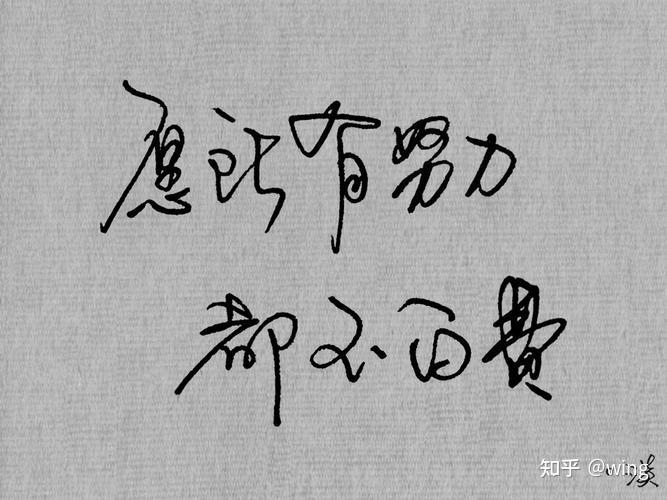 愿所有努力
都不白费
知乎 @wing